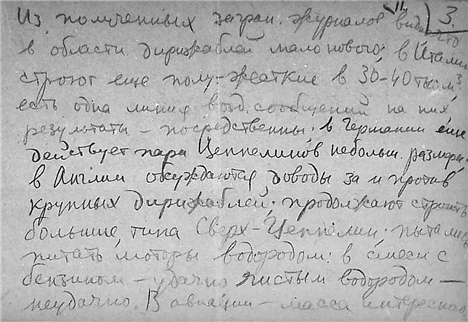 Из полученных загран. журналов видно что 3.
в области дирижаблей мало нового; в Италии
строют еще полу-жесткие в 30-40 тыс м³
есть одна линия возд. сообщений на них
результаты - посредственны. в Германии еще
действует пара Цеппелинов небольш. размера.
в Англии обсуждаются доводы за и против
крупных дирижаблей. продолжают строить
большие типа Сверх-Цеппелин. пыта
питать моторы водородом: в смеси с
бензином - удачно чистым водородом -
неудачно. В авиации - масса интересного